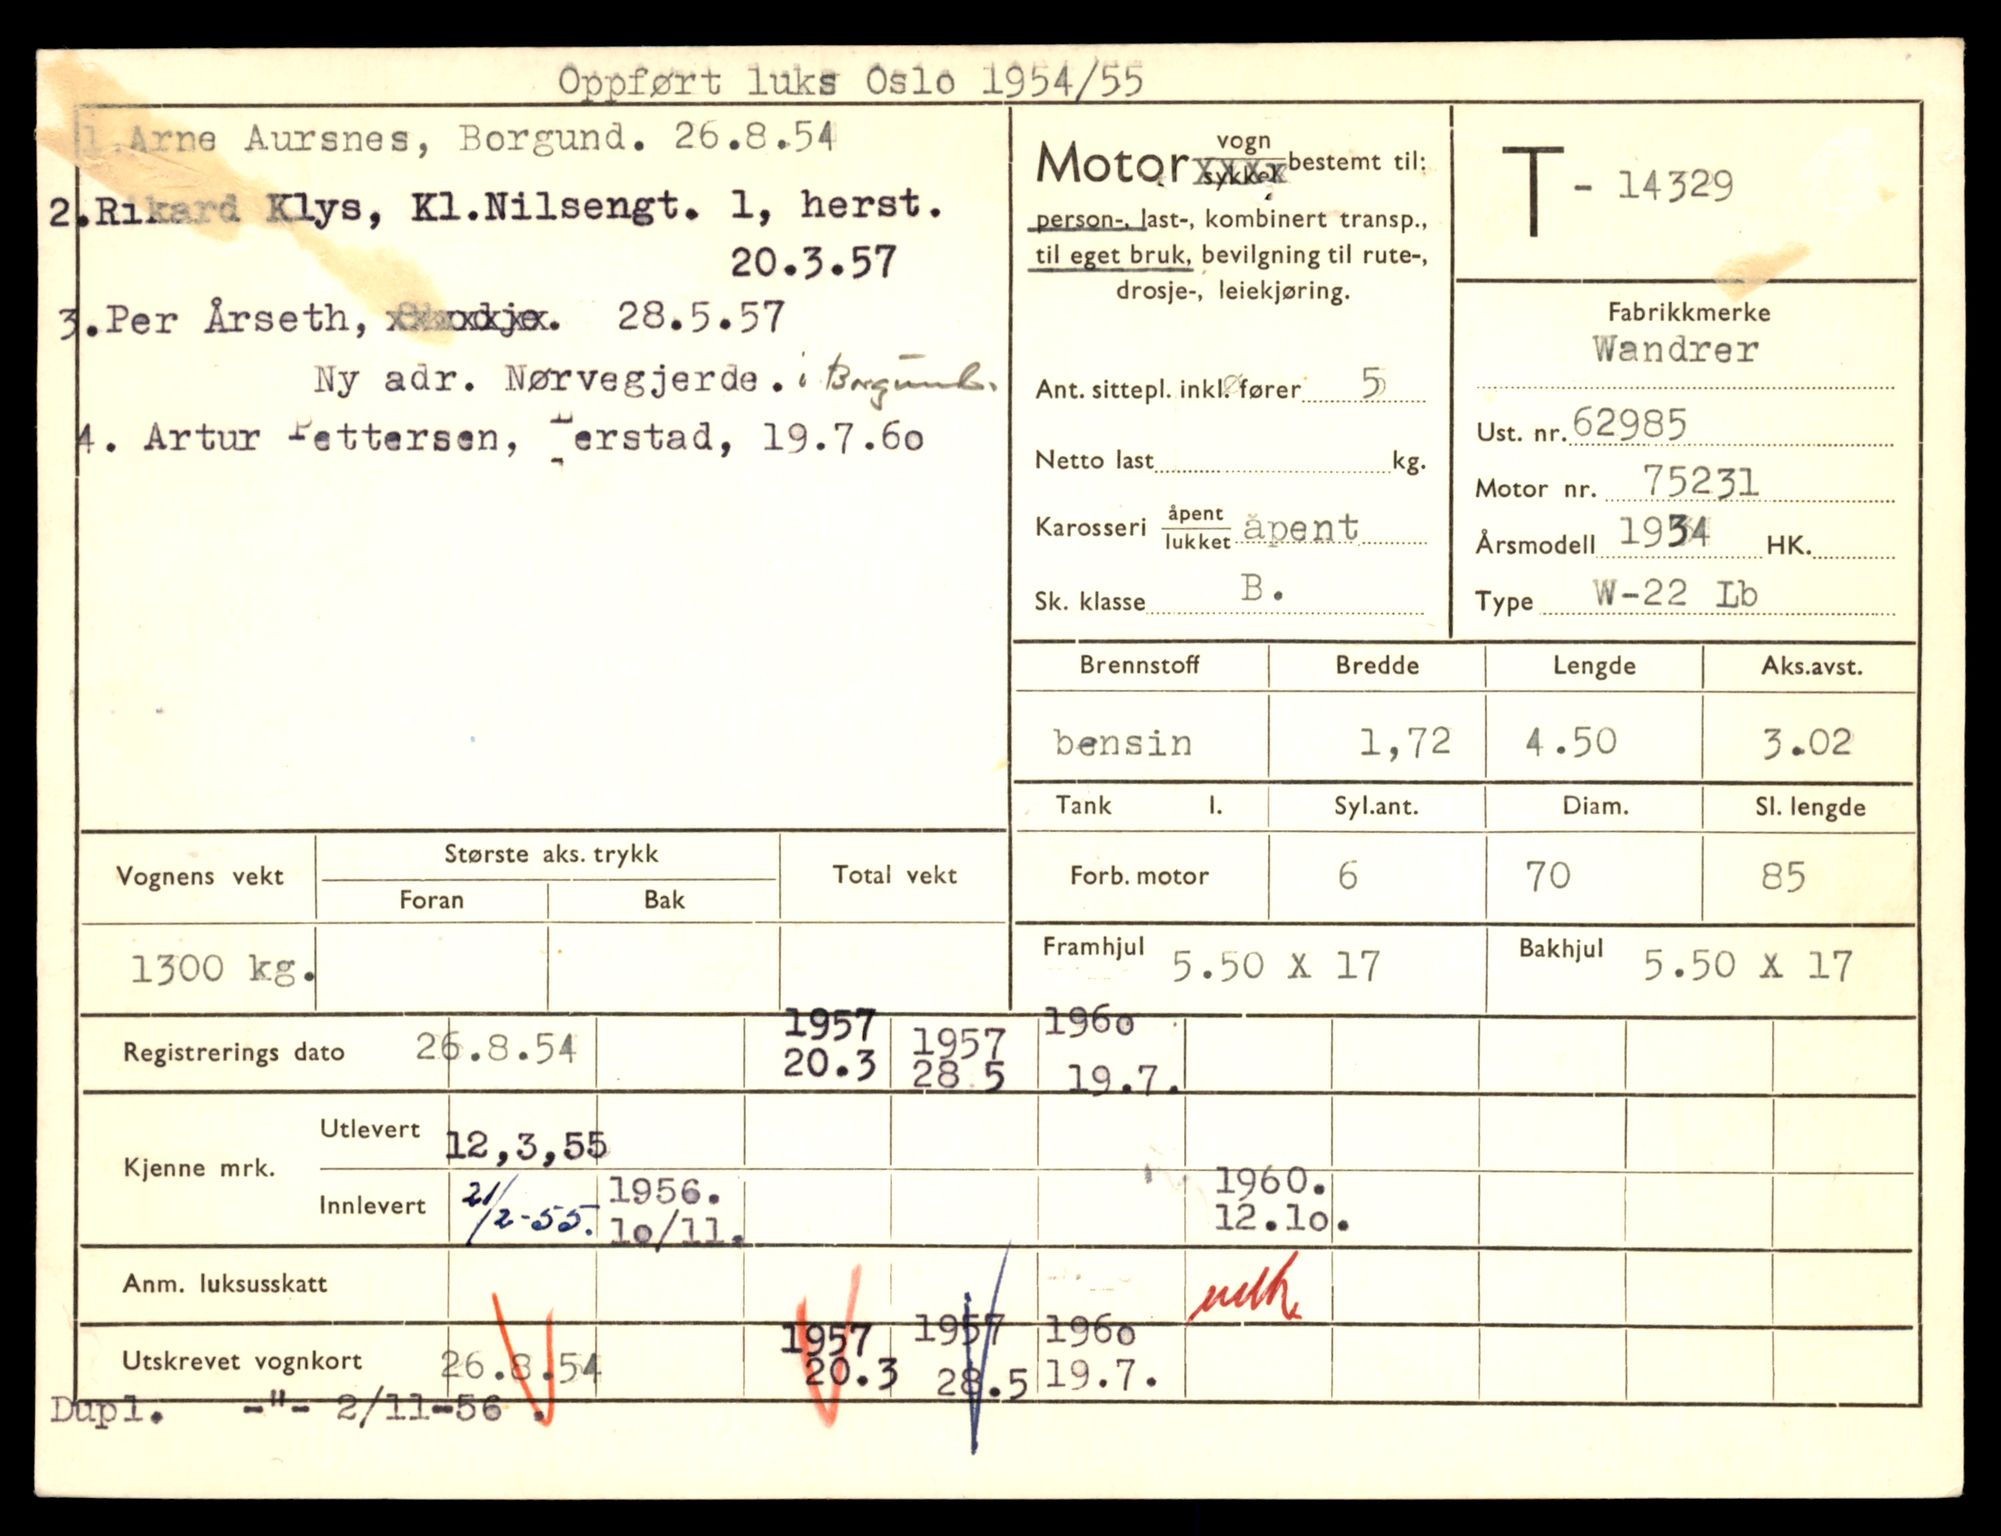 Oppført luks Oslo 1954/55
1.Arne Aursnes, Borgund. 26.8.54
2.Rikard Klys, Kl.Nilsengt. 1, herst.
20.3.57
3.Per Årseth, 28.5.57
Ny adr. Nørvegjerde. i Borgund.
4. Artur Pettersen, erstad, 19.7.6o
Motor vogn bestemt til:
sykkel
person-, last-, kombinert transp.,
til eget bruk, bevilgning til rute-,
drosje-, leiekjøring.
Ant. sittepl. inkl. fører 5
Netto last kg.
Karosseri åpent åpent
lukket
Sk. klasse B.
T - 14329
Fabrikkmerke
Wandrer
Ust. nr. 62985
Motor nr. 75231
Årsmodell 1934 HK.
Type W-22 Lb
Brennstoff Bredde Lengde Aks.avst.
bensin 1,72 4.50 3.02
Tank l. Syl.ant. Diam. Sl. lengde
Forb. motor 6 70 85
Framhjul 5.50 X 17 Bakhjul 5.50 X 17
Vognens vekt Største aks. trykk Total vekt
Foran Bak
1300 kg.
Registrerings dato 26.8.54 1957 20.3 1957 28 5 196o 19.7.
Kjenne mrk. Utlevert 12,3,55
Innlevert 21/2-55. 1956. 1o/11. 1960. 12.1o.
Anm. luksusskatt
Utskrevet vognkort 26.8.54 1957 20.3 1957 28.5 196o 19.7.
Dupl. -"- 2/11-56 .